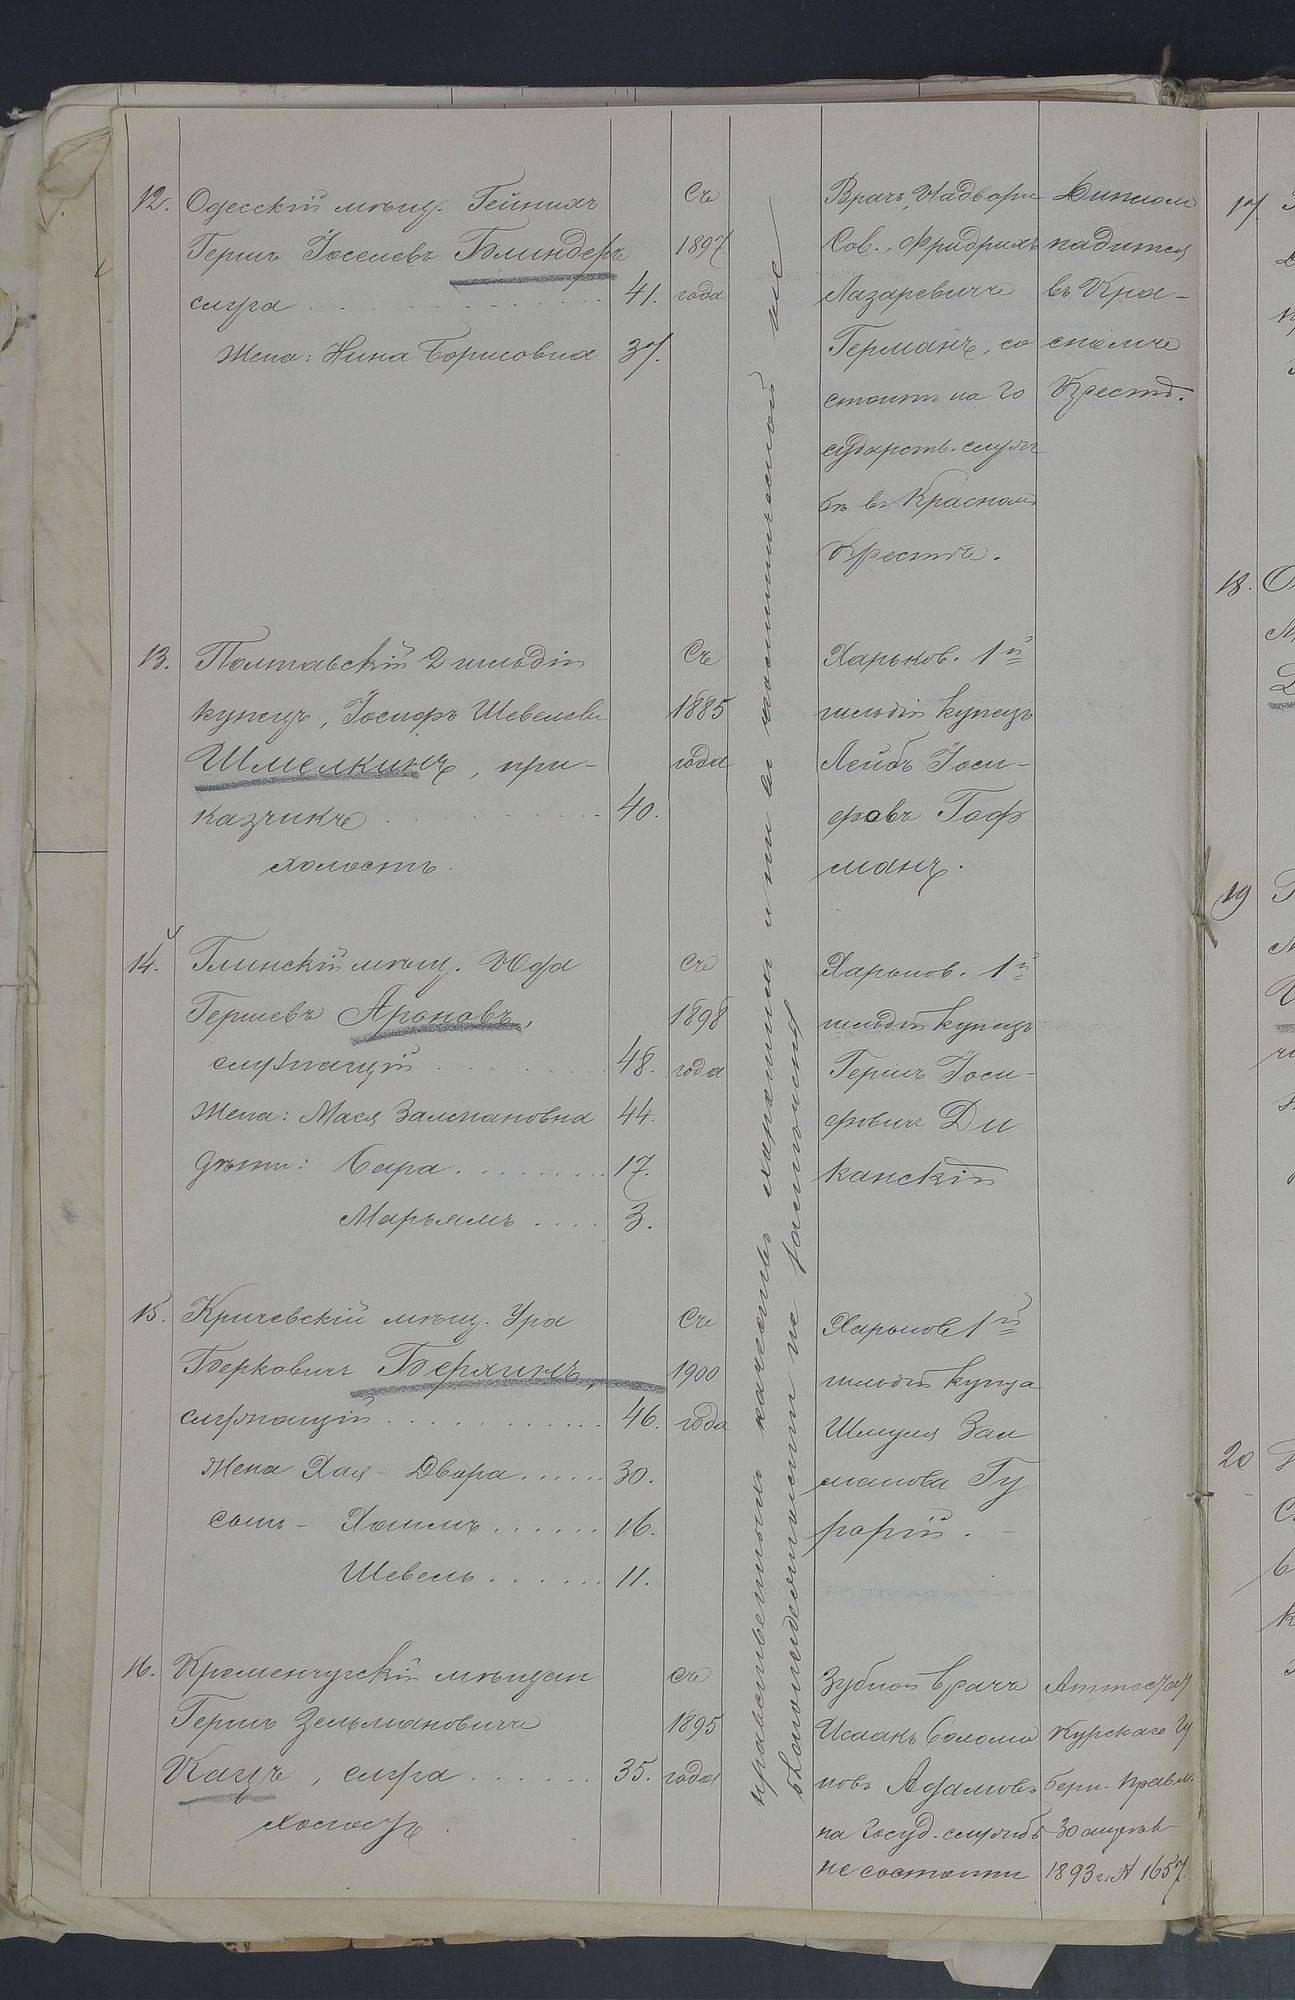 12. Одесскій мѣщ. Гейнихъ
Гершъ Іоселевъ Блиндеръ
слуга . . . 41.
Жена: Нина Борисовна 37.
Съ
1897
года
Врачъ, Надворн
Сов., Фридрихъ
Лазаревичъ
Германъ, со
стоитъ на Го
сударств. служ
бѣ въ Красномъ
Крестѣ.
Диплом
находится
въ Кра-
сномъ
Крестѣ.
13. Полтавскій 2 гильдіи
купецъ, Іосифъ Шевелевъ
Шмелкинъ, при-
казчикъ . . . 40.
холостъ.
Съ
1885
года
Харьков. 1й
гильдіи купецъ
Лейбъ Іоси-
фовъ Гоф
манъ.
14. Глинскій мѣщ. Юда
Гершевъ Ароновъ,
служащій . . . 48.
Жена: Мася Залмановна 44.
дѣти: Сара . . . 17.
Марьямъ . . . 3.
Съ
1898
года
Харьков. 1й
гильдіи купецъ
Гершъ Іоси-
фовичъ Ди
канскій
15. Кричевскій мѣщ. Ура
Берковичъ Берлинъ,
служащій . . . 46.
Жена Хая-Двора . . . 30.
сынъ - Хаимъ . . . 16.
Шевель . . . 11.
Съ
1900
года
Харьков 1й
гильдіи купца
Шмуля Зал
манова Гу
рарій.
16. Кременчугскій мѣщан
Гершъ Зельмановичъ
Кацъ, слуга . . . 35.
холостъ.
Съ
1895
года
Зубной врачъ
Исаакъ Соломо
новъ Адамовъ
на Госуд. службѣ
не состоитъ
Аттестат
Курскаго Гу
берн. Правл.
30 августа
1893 г. № 1657.
нравственныхъ качествъ хорошихъ и ни въ чемъ
не
17
18.
19
20